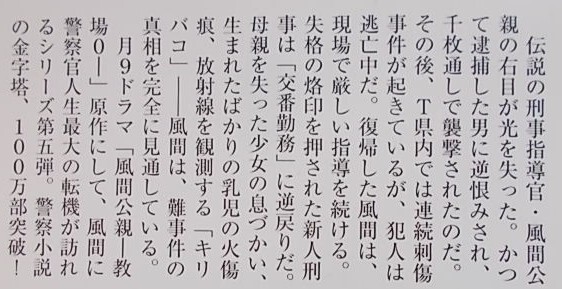 伝説の刑事指導官・風間公
親の右目が光を失った。かつ
て逮捕した男に逆恨みされ、
千枚通しで襲撃されたのだ。
その後、T県内では連続刺傷
事件が起きているが、犯人は
逃亡中だ。復帰した風間は、
現場で厳しい指導を続ける。
失格の烙印を押された新人刑
事は「交番勤務」に逆戻りだ。
母親を失った少女の息づかい、
生まれたばかりの乳児の火傷
痕、放射線を観測する「キリ
バコ」――風間は、難事件の
真相を完全に見通している。
月9ドラマ「風間公親―教
場0―」原作にして、風間に
警察官人生最大の転機が訪れ
るシリーズ第五弾。警察小説
の金字塔、100万部突破!